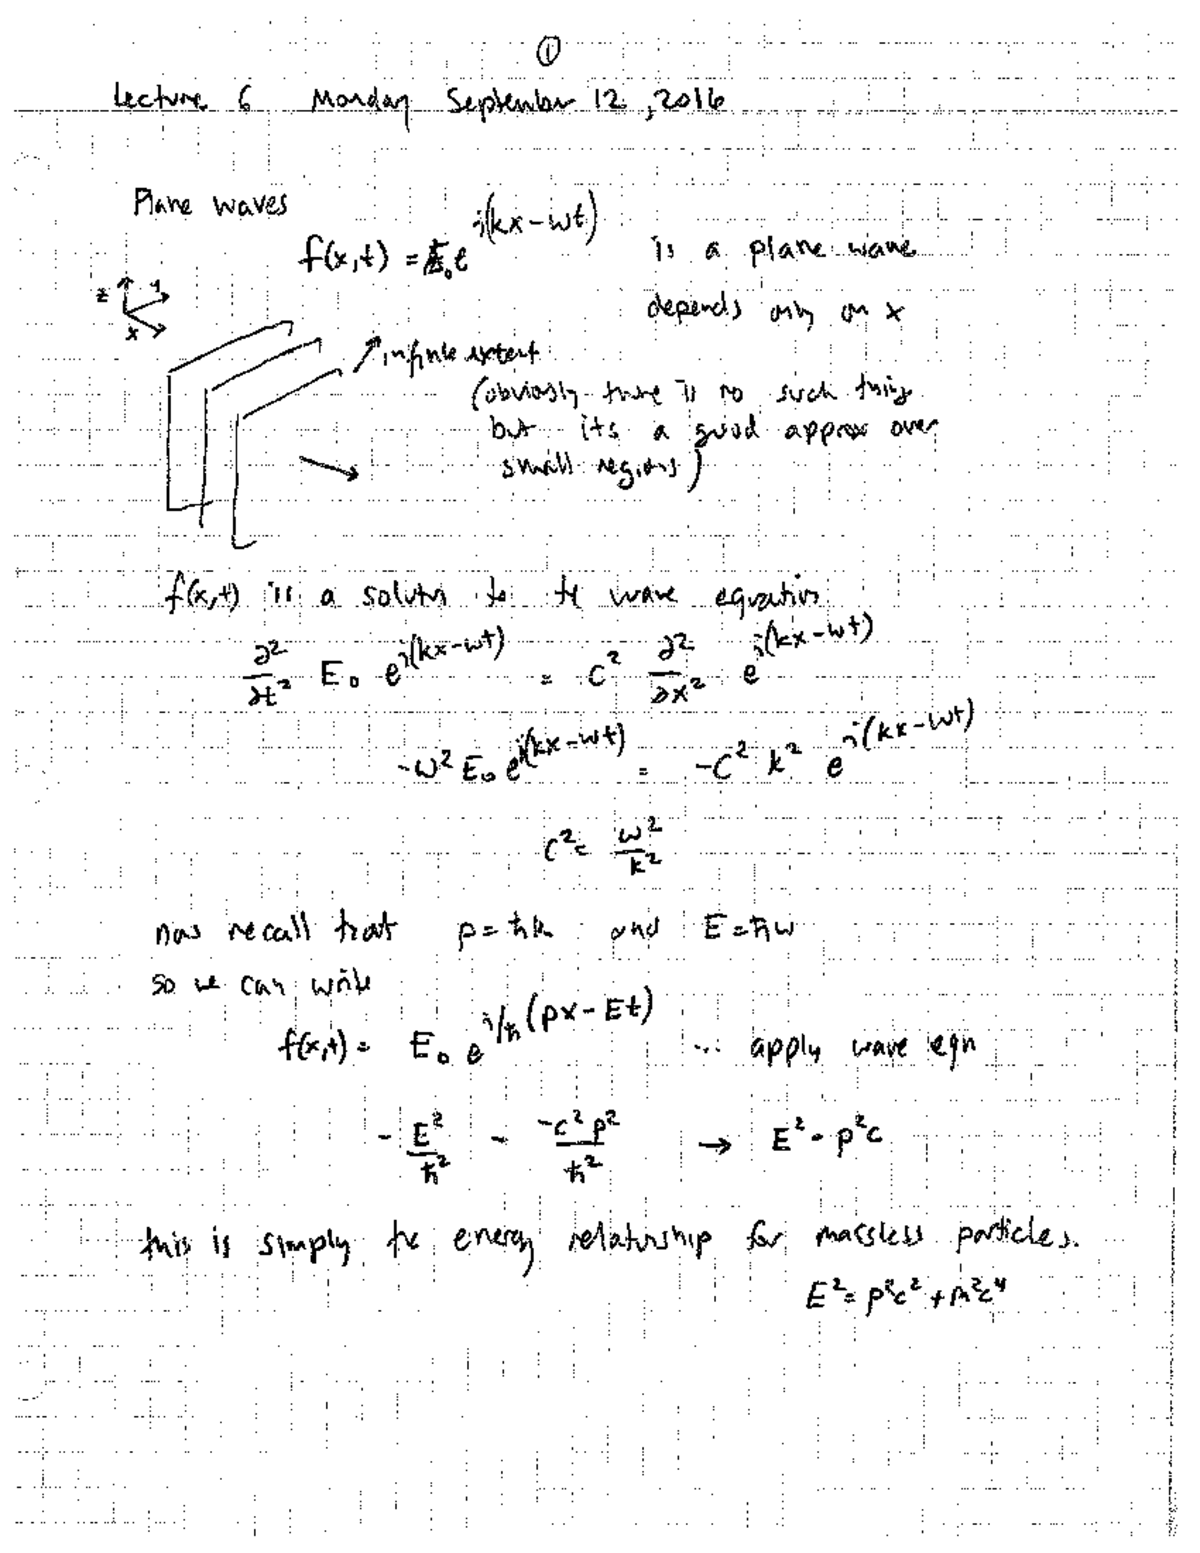 ①
Lecture 6 Monday September 12, 2016
Plane waves
f(x,t) = E₀e^{i(kx-wt)} is a plane wave
depends only on x
z y x
↗ infinite extent
(obviously there is no such thing
but its a good approx over
small regions)
f(x,t) is a solutn to te wave equation
∂²/∂t² E₀ e^{i(kx-wt)} = c² ∂²/∂x² e^{i(kx-wt)}
-w² E₀ e^{i(kx-wt)} = -c² k² e^{i(kx-wt)}
c² = w²/k²
now recall that p = ħk and E = ħw
so we can write
f(x,t) = E₀ e^{i/ħ (px - Et)} ... apply wave eqn
- E²/ħ² = -c² p²/ħ² → E² = p²c
this is simply the energy relationship for massless particles.
E² = p²c² + m²c⁴